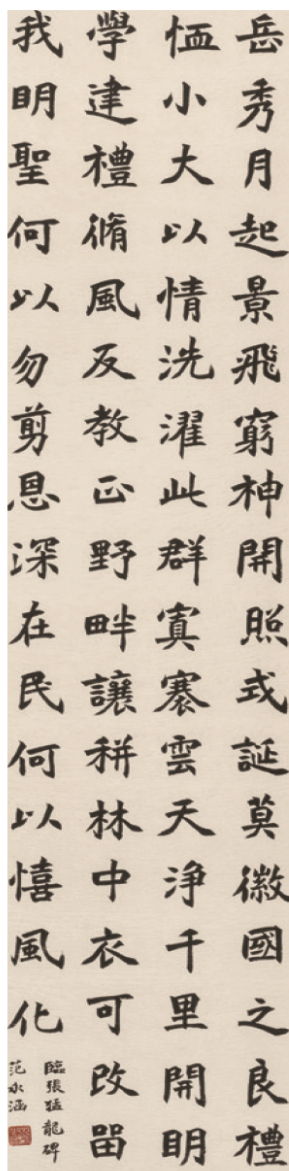 岳秀月起景飛窮神開照式誕莫徽國之良禮
恤小大以情洗濯此群冥褰雲天淨千里開明
學建禮脩風反教正野畔讓耕林中衣可改留
我明聖何以勿剪恩深在民何以憘風化
臨張猛龍碑
范水涵